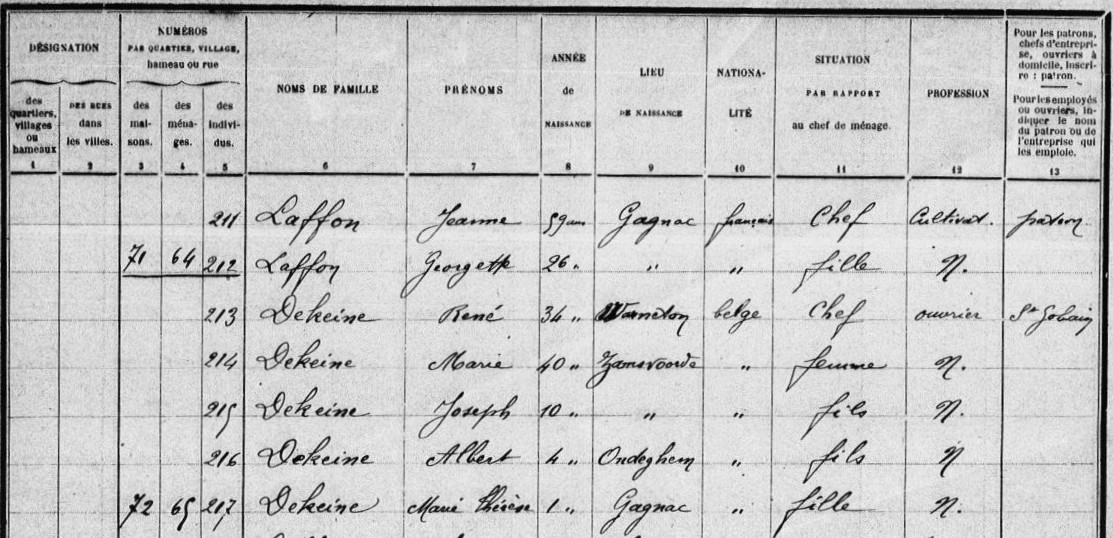 DÉSIGNATION
NUMÉROS
PAR QUARTIER, VILLAGE,
hameau ou rue
des quartiers, villages ou hameaux
DES RUES dans les villes.
des maisons.
des ménages.
des individus.
NOMS DE FAMILLE
PRÉNOMS
ANNÉE de NAISSANCE
LIEU DE NAISSANCE
NATIONALITÉ
SITUATION PAR RAPPORT au chef de ménage.
PROFESSION
Pour les patrons, chefs d'entreprise, ouvriers à domicile, inscrire : patron.
Pour les employés ou ouvriers, indiquer le nom du patron ou de l'entreprise qui les emploie.
1 2 3 4 5 6 7 8 9 10 11 12 13
211 Laffon Jeanne 59 ans Gagnac français Chef Cultivat. patron
71 64 212 Laffon Georgette 26 " " " fille N.
213 Dekeine René 34 " Warneton belge Chef ouvrier St Gobain
214 Dekeine Marie 40 " Zansvoorde " femme N.
215 Dekeine Joseph 10 " " " fils N.
216 Dekeine Albert 4 " Ondeghem " fils N
72 65 217 Dekeine Marie Thérèse 1 " Gagnac " fille N.